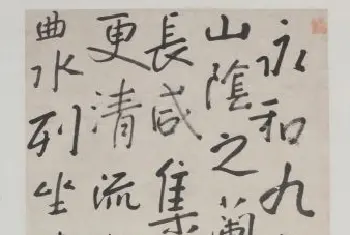 永和九
山陰之蘭
長咸集
更清流
曲水列坐